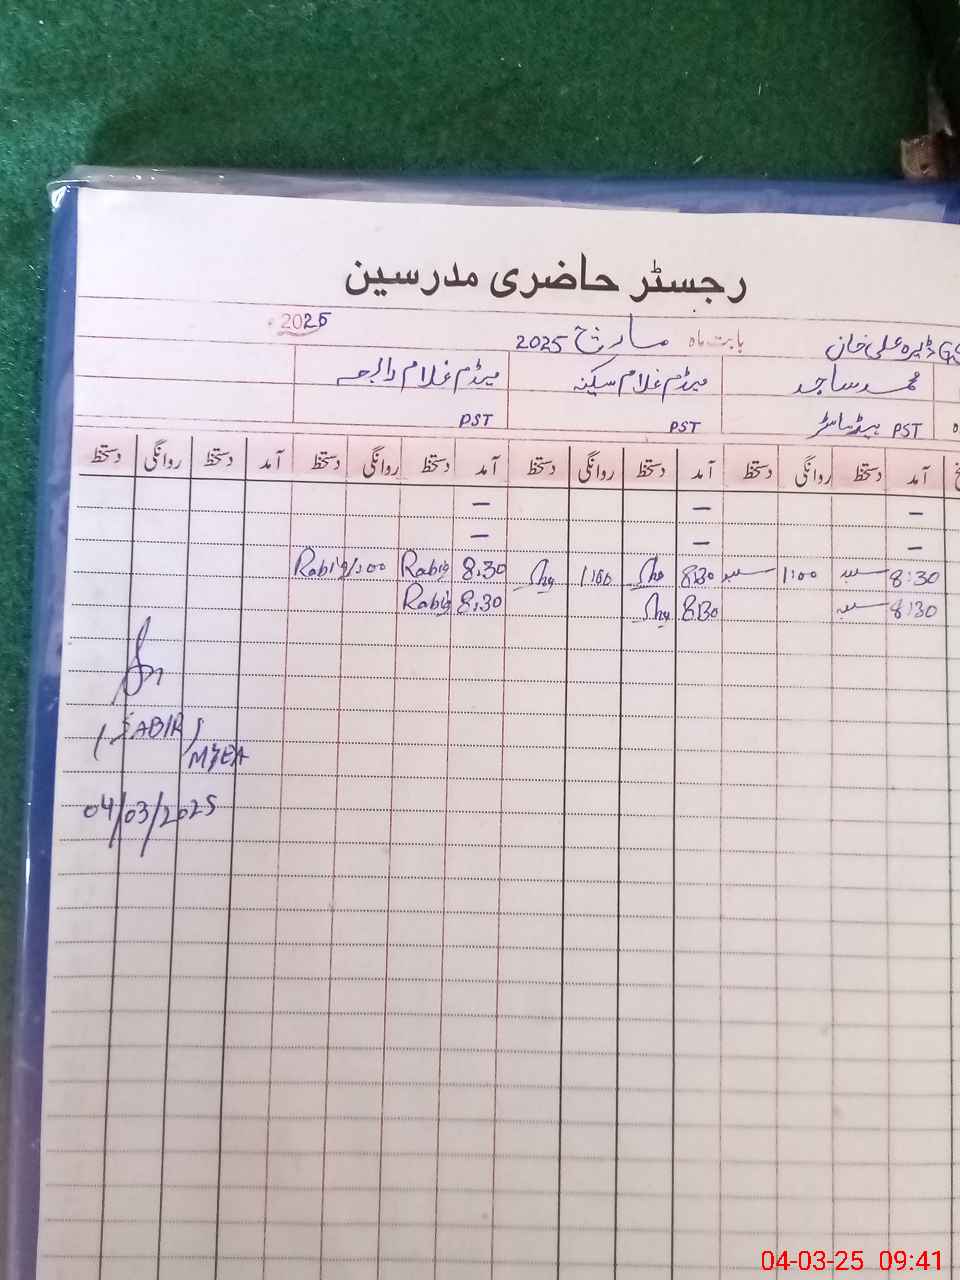 رجسٹر حاضری مدرسین
ڈیرہ علی خان بابت ماہ مارچ 2025 2025
محمد ساجد میڈم غلام سکینہ میڈم غلام رابعہ
PST ہیڈماسٹر PST PST
آمد دستخط روانگی دستخط آمد دستخط روانگی دستخط آمد دستخط روانگی دستخط آمد دستخط روانگی دستخط
– – –
– – –
8:30 1:00 8:30 1:00 8:30 Rabia 1:00 Rabia
8:30 8:30 8:30 Rabia
(SABIR)
MYEA
04/03/2025
04-03-25 09:41